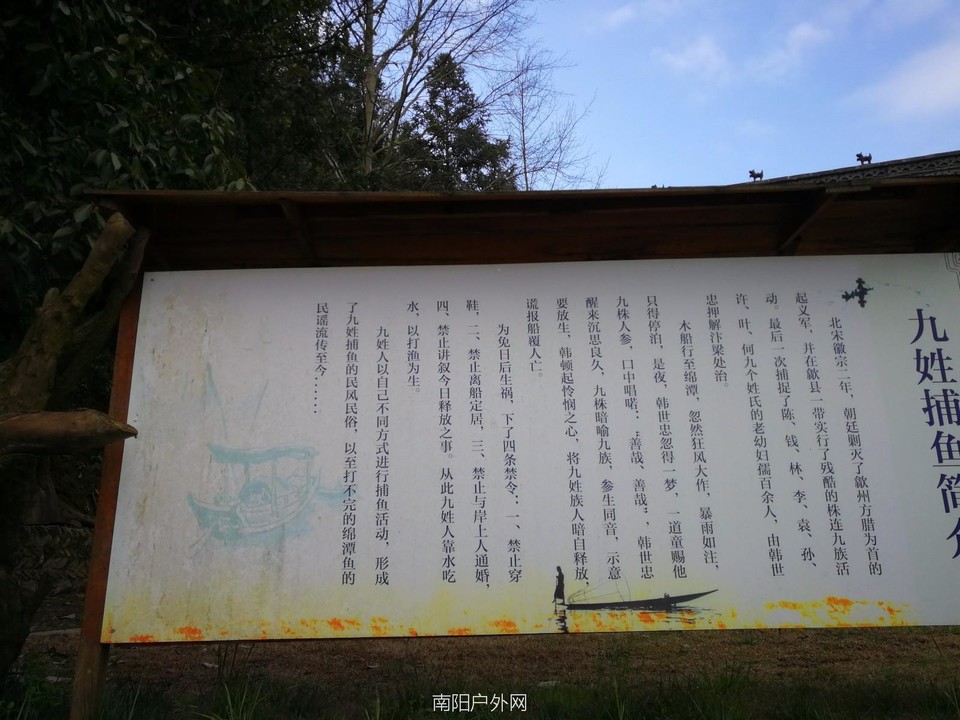 九姓捕鱼简介
北宋徽宗二年，朝廷剿灭了歙州方腊为首的
起义军，并在歙县一带实行了残酷的株连九族活
动。最后一次捕捉了陈、钱、林、李、袁、孙、
许、叶、何九个姓氏的老幼妇孺百余人，由韩世
忠押解汴梁处治。
木船行至绵潭，忽然狂风大作，暴雨如注，
只得停泊，是夜，韩世忠忽得一梦，一道童赐他
九株人参，口中唱喏：“善哉、善哉”，韩世忠
醒来沉思良久，九株暗喻九族，参生同音，示意
要放生，韩顿起怜悯之心，将九姓族人暗自释放，
谎报船覆人亡。
为免日后生祸，下了四条禁令：一、禁止穿
鞋，二、禁止离船定居，三、禁止与岸上人通婚，
四、禁止讲叙今日释放之事。从此九姓人靠水吃
水，以打渔为生。
九姓人以自己不同方式进行捕鱼活动，形成
了九姓捕鱼的民风民俗，以至打不完的绵潭鱼的
民谣流传至今......
南阳户外网